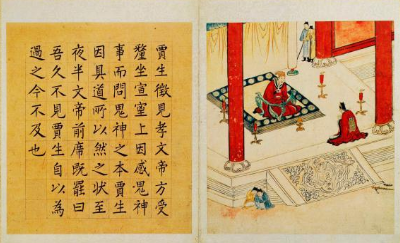 賈生徵見孝文帝方受
釐坐宣室上因感鬼神
事而問鬼神之本賈生
因具道所以然之狀至
夜半文帝前席既罷曰
吾久不見賈生自以為
過之今不及也